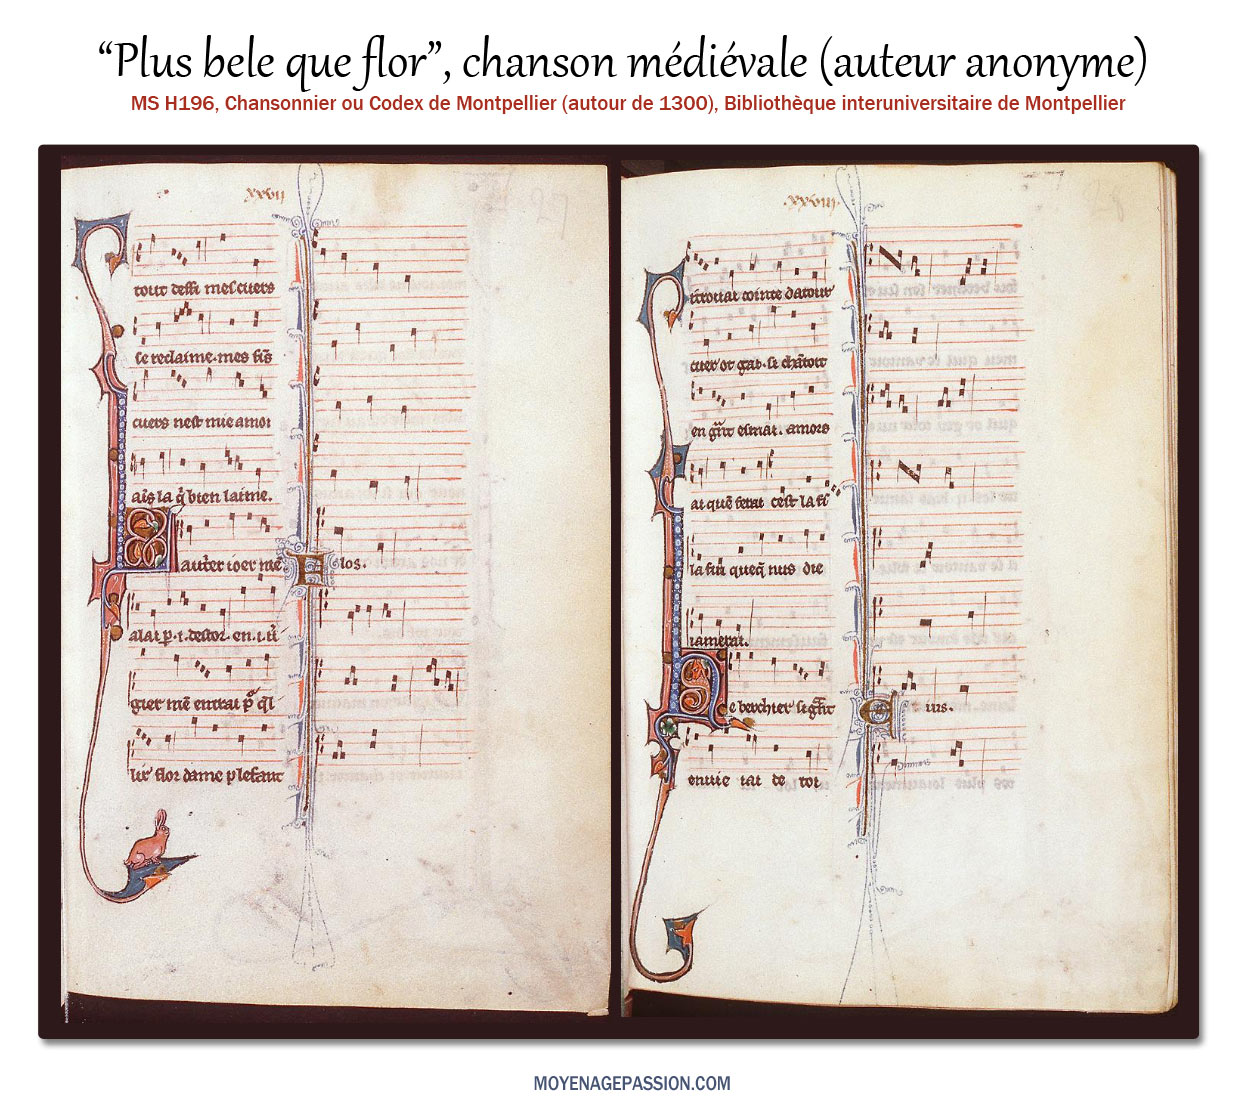 “Plus bele que flor”, chanson médiévale (auteur anonyme)
MS H196, Chansonnier ou Codex de Montpellier (autour de 1300), Bibliothèque interuniversitaire de Montpellier
xxvii
tout dessi mes cuers
se reclaime. mes fins
cuers nest mie a moi
ains la q̃ bien laime.
L autrier ioer mẽ
alai p̱ .i. destor. en .i. ũ
gier mẽ entrai p̱ q̃l
lir flor dame plesant
F los.
xxviii
i trouai cointe datour
cuer ot gai. si chãtoit
en g̃nt esmai. amors
ai quẽ ferai cest la fĩ
la fin queq̃ nus die
iamerai.
E ius.
e berchier si g̃nt
enuie iai de toi
MOYENAGEPASSION.COM